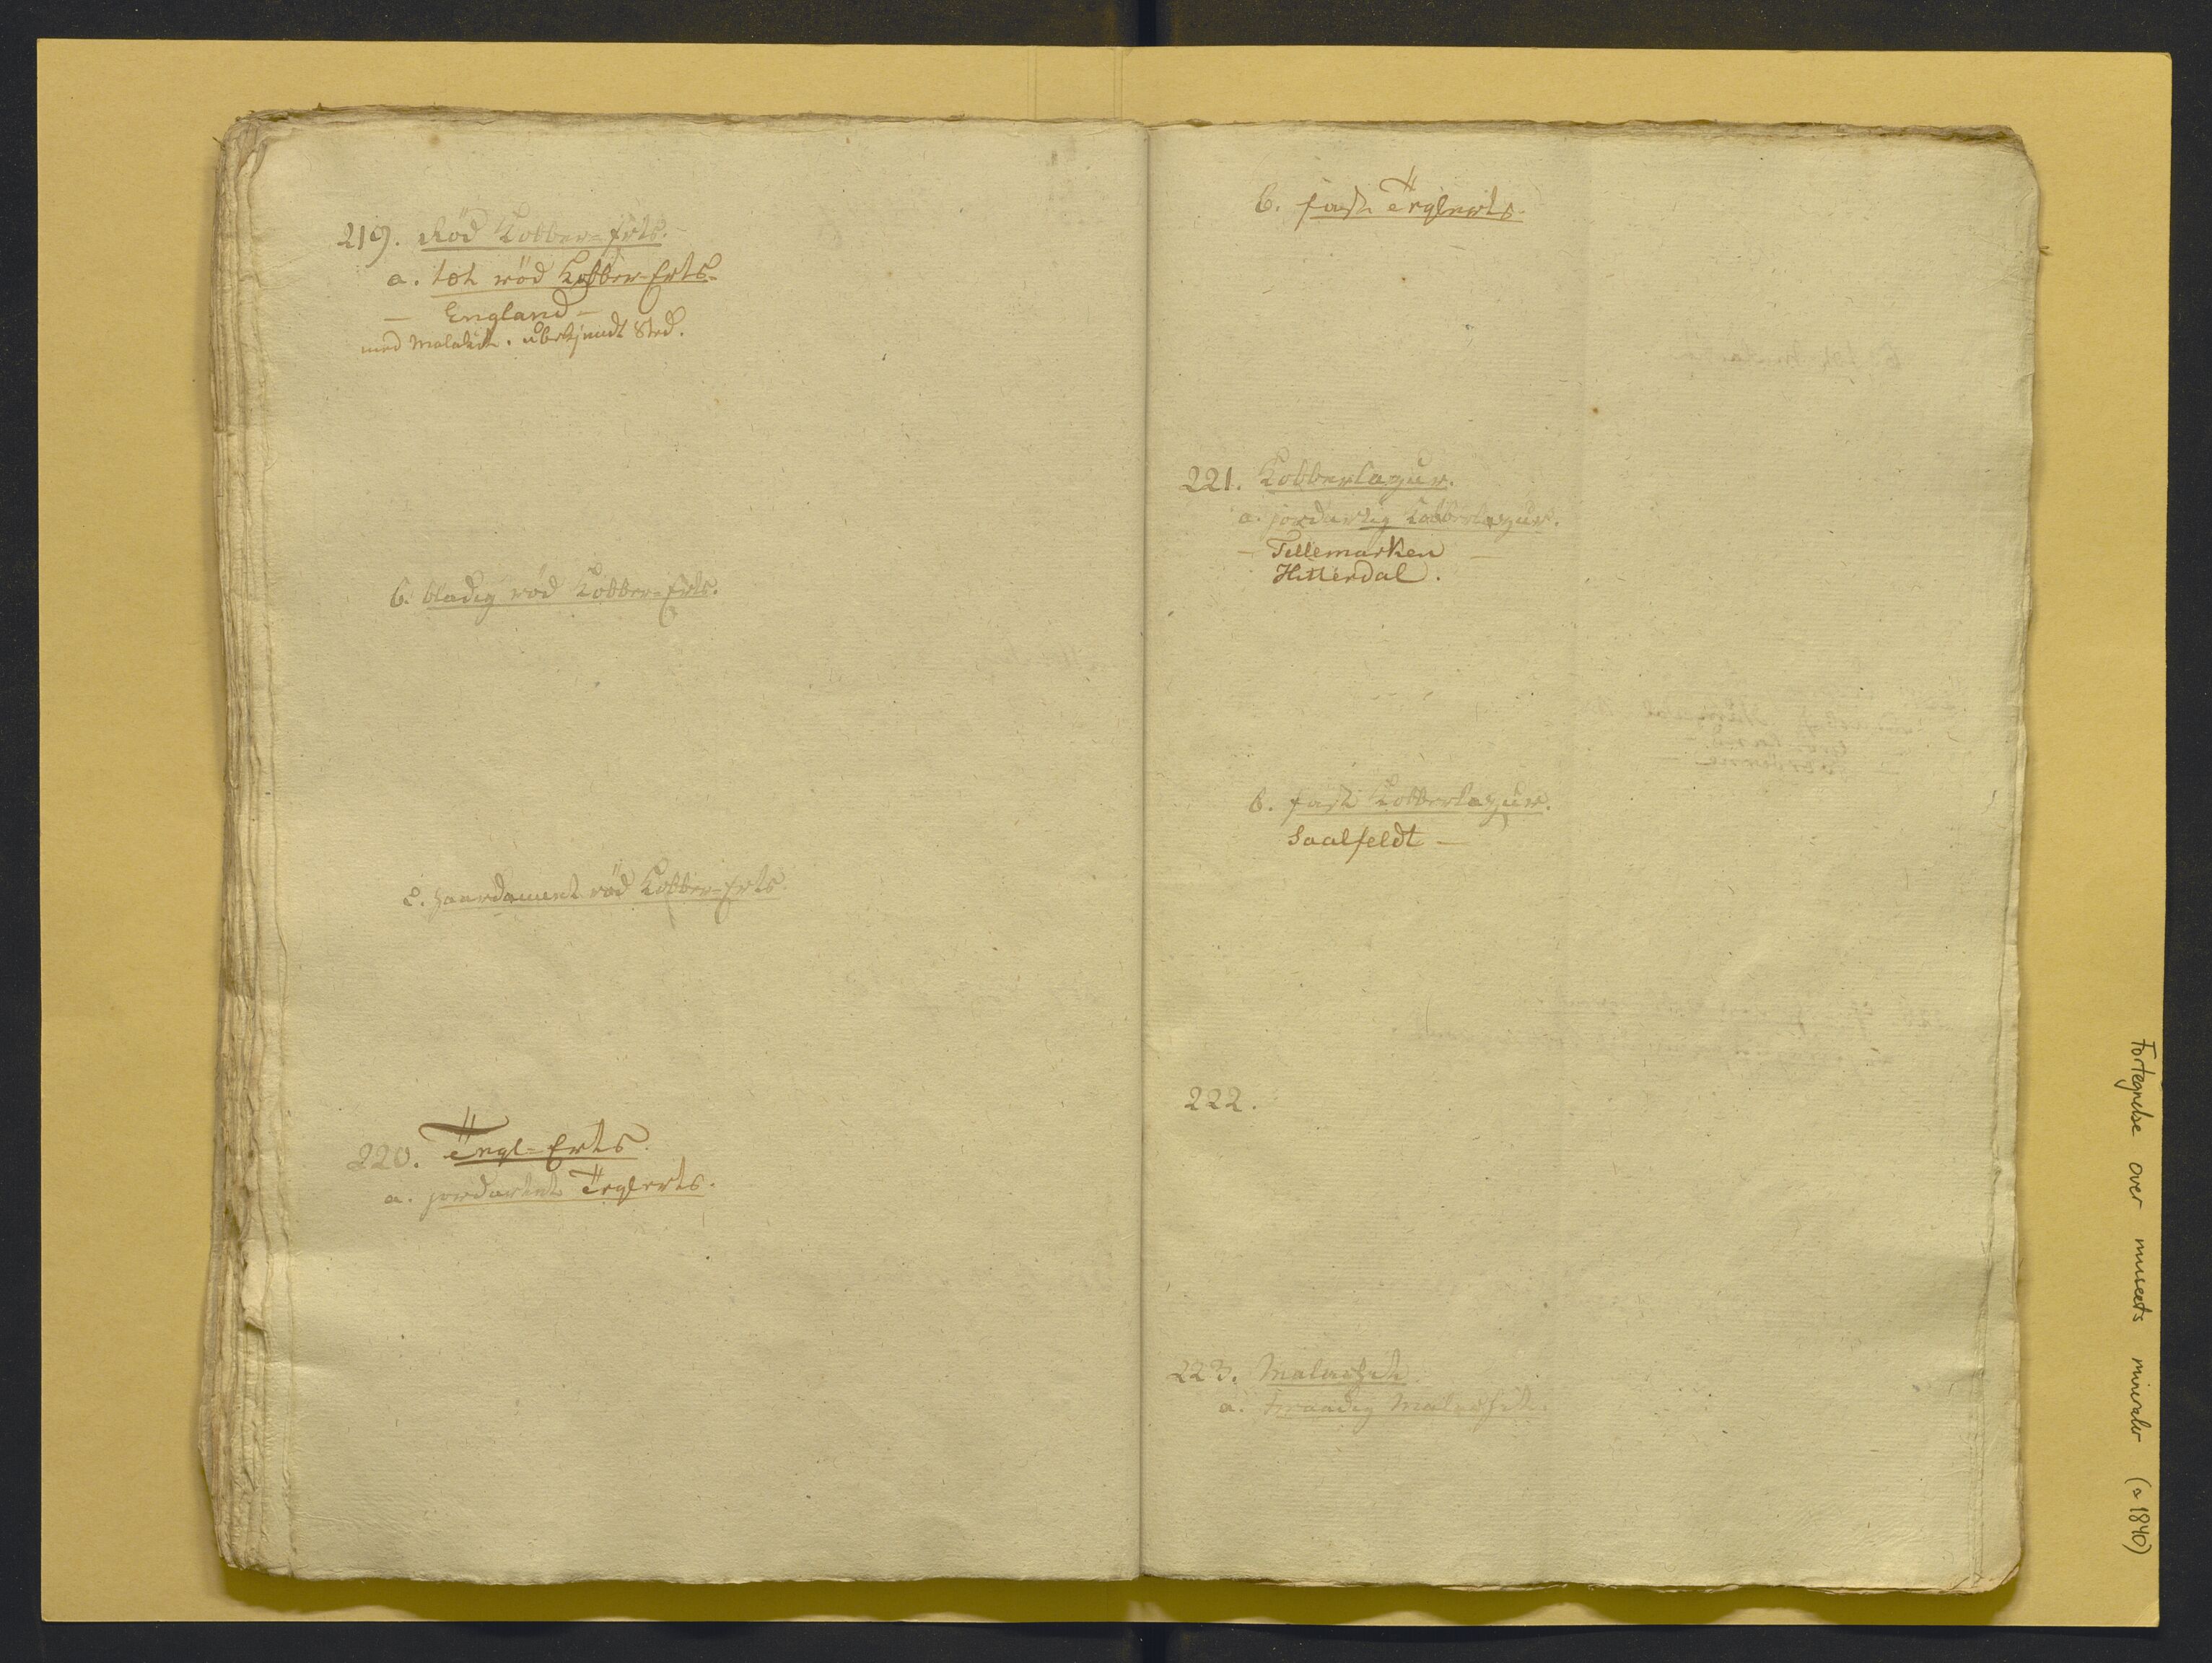 219. Röd Kobber-Erts.
a. tæt röd Kobber-Erts
— England —
med Malakit. ubekjendt Sted.
b. bladig röd Kobber-Erts.
c. haardannet röd Kobber-Erts.
220. Tegl-Erts.
a. jordartet Teglerts.
b. fast Teglerts.
221. Kobberlazur.
a. jordartig Kobberlazur.
— Tellemarken —
Hitterdal.
b. fast Kobberlazur.
Saalfeldt —
222.
223. Malachit
a. traadig Malachit.
Fortegnelse over museets mineraler (ca 1840)